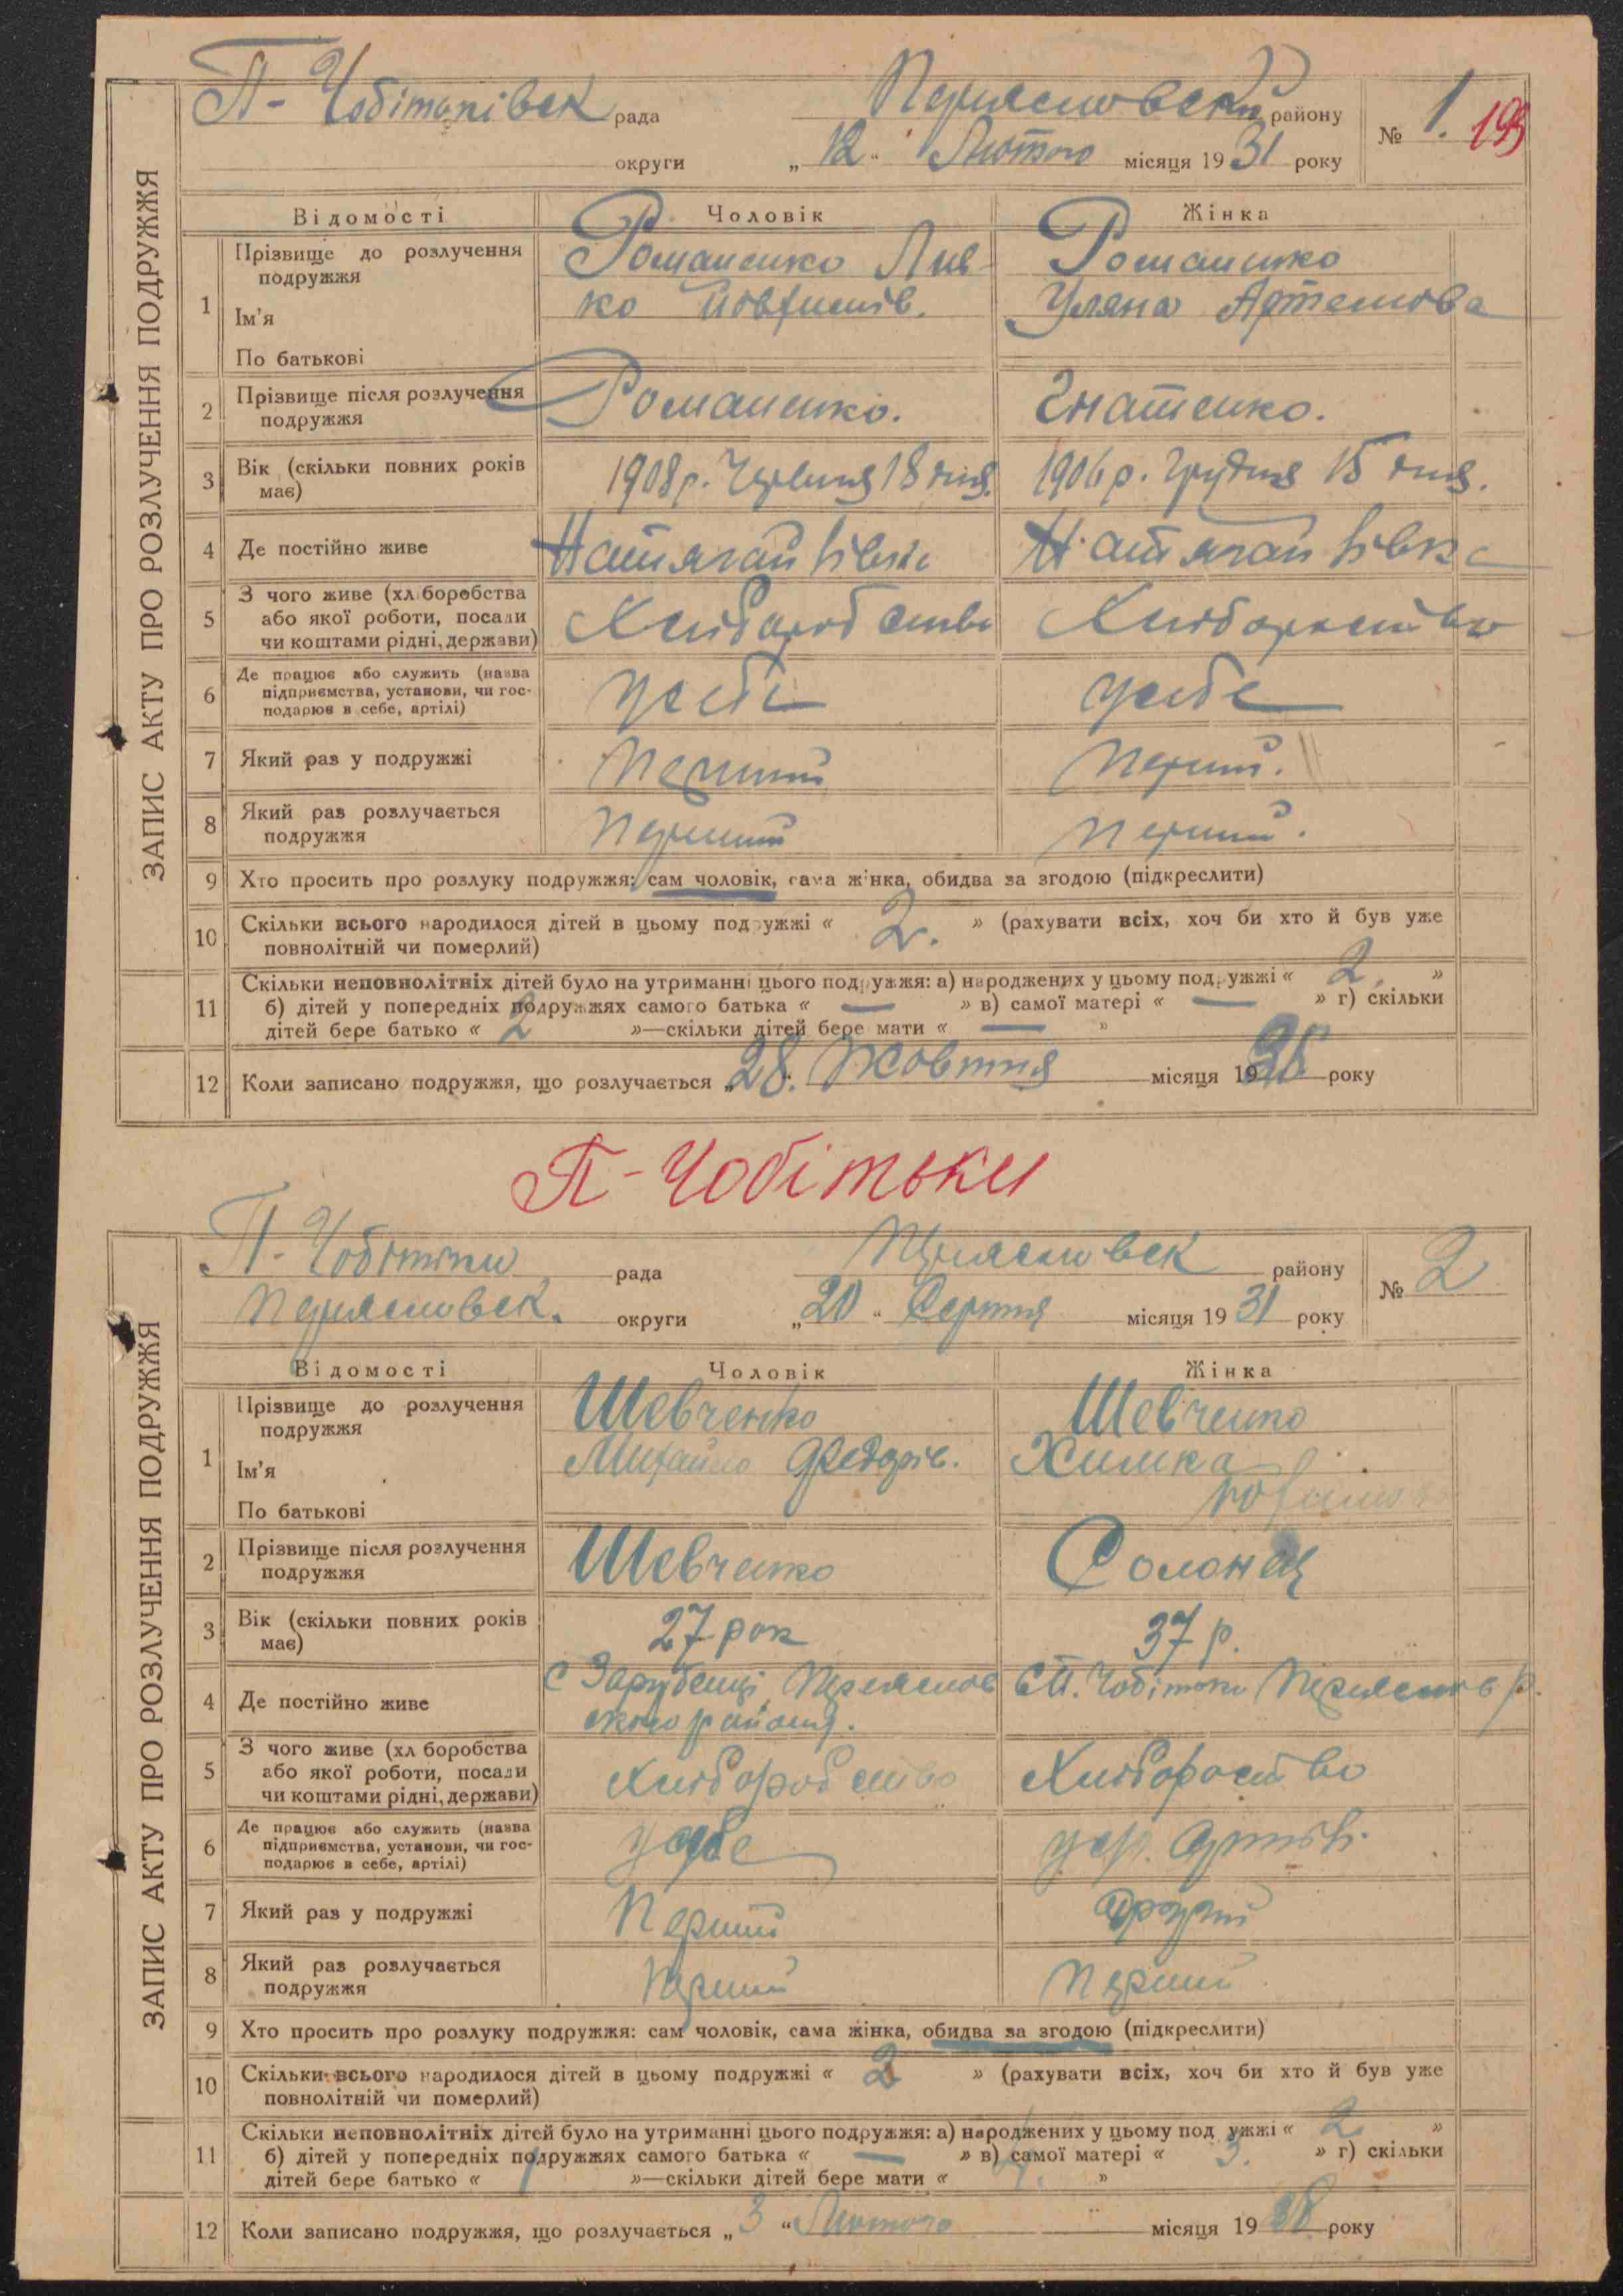 ЗАПИС АКТУ ПРО РОЗЛУЧЕННЯ ПОДРУЖЖЯ
П-Чобітьківск рада
Переяславский району
№ 1. 199
округи
„ 12 “ Лютого місяця 19 31 року
Відомості Чоловік Жінка
1 Прізвище до розлучення подружжя Романенко Романенко
Ім'я Уляна Артемова
По батькові
2 Прізвище після розлучення подружжя Романенко. Гнатенко.
3 Вік (скільки повних років має) 1908 р. Червня 18 дня. 1906 р. Грудня 15 дня.
4 Де постійно живе
5 З чого живе (хл боробства або якої роботи, посади чи коштами рідні, держави) Хліборобство
6 Де працює або служить (назва підприємства, установи, чи господарює в себе, артілі) усебе усебе
7 Який раз у подружжі Перший Перший.
8 Який раз розлучається подружжя Перший Перший.
9 Хто просить про розлуку подружжя: сам чоловік, сама жінка, обидва за згодою (підкреслити)
10 Скільки всього народилося дітей в цьому подружжі « 2. » (рахувати всіх, хоч би хто й був уже
повнолітній чи померлий)
11 Скільки неповнолітніх дітей було на утриманні цього подружжя: а) народжених у цьому подружжі « 2. »
б) дітей у попередніх подружжях самого батька « — » в) самої матері « — » г) скільки
дітей бере батько « 2 »—скільки дітей бере мати « — »
12 Коли записано подружжя, що розлучається „ 28. Жовтня місяця 19 року
П-Чобітьки
ЗАПИС АКТУ ПРО РОЗЛУЧЕННЯ ПОДРУЖЖЯ
П-Чобітьки рада
Переяславск району
№ 2
Переяславск. округи
„ 20 “ Серпня місяця 19 31 року
Відомості Чоловік Жінка
1 Прізвище до розлучення подружжя Шевченко Шевченко
Ім'я Михайло Федорів. Химка
По батькові
2 Прізвище після розлучення подружжя Шевченко Солонец
3 Вік (скільки повних років має) 27 рок 37 р.
4 Де постійно живе с Зарубенці Переяславского району. с П. Чобітьки Переяславс р.
5 З чого живе (хл боробства або якої роботи, посади чи коштами рідні, держави) Хліборобство
6 Де працює або служить (назва підприємства, установи, чи господарює в себе, артілі) усебе
7 Який раз у подружжі Перший Другий
8 Який раз розлучається подружжя Перший Перший
9 Хто просить про розлуку подружжя: сам чоловік, сама жінка, обидва за згодою (підкреслити)
10 Скільки всього народилося дітей в цьому подружжі « 2 » (рахувати всіх, хоч би хто й був уже
повнолітній чи померлий)
11 Скільки неповнолітніх дітей було на утриманні цього подружжя: а) народжених у цьому под ужжі « 2 »
б) дітей у попередніх подружжях самого батька « — » в) самої матері « 3. » г) скільки
дітей бере батько « 1 »—скільки дітей бере мати « »
12 Коли записано подружжя, що розлучається „ 3 “ Лютого місяця 19 28 року